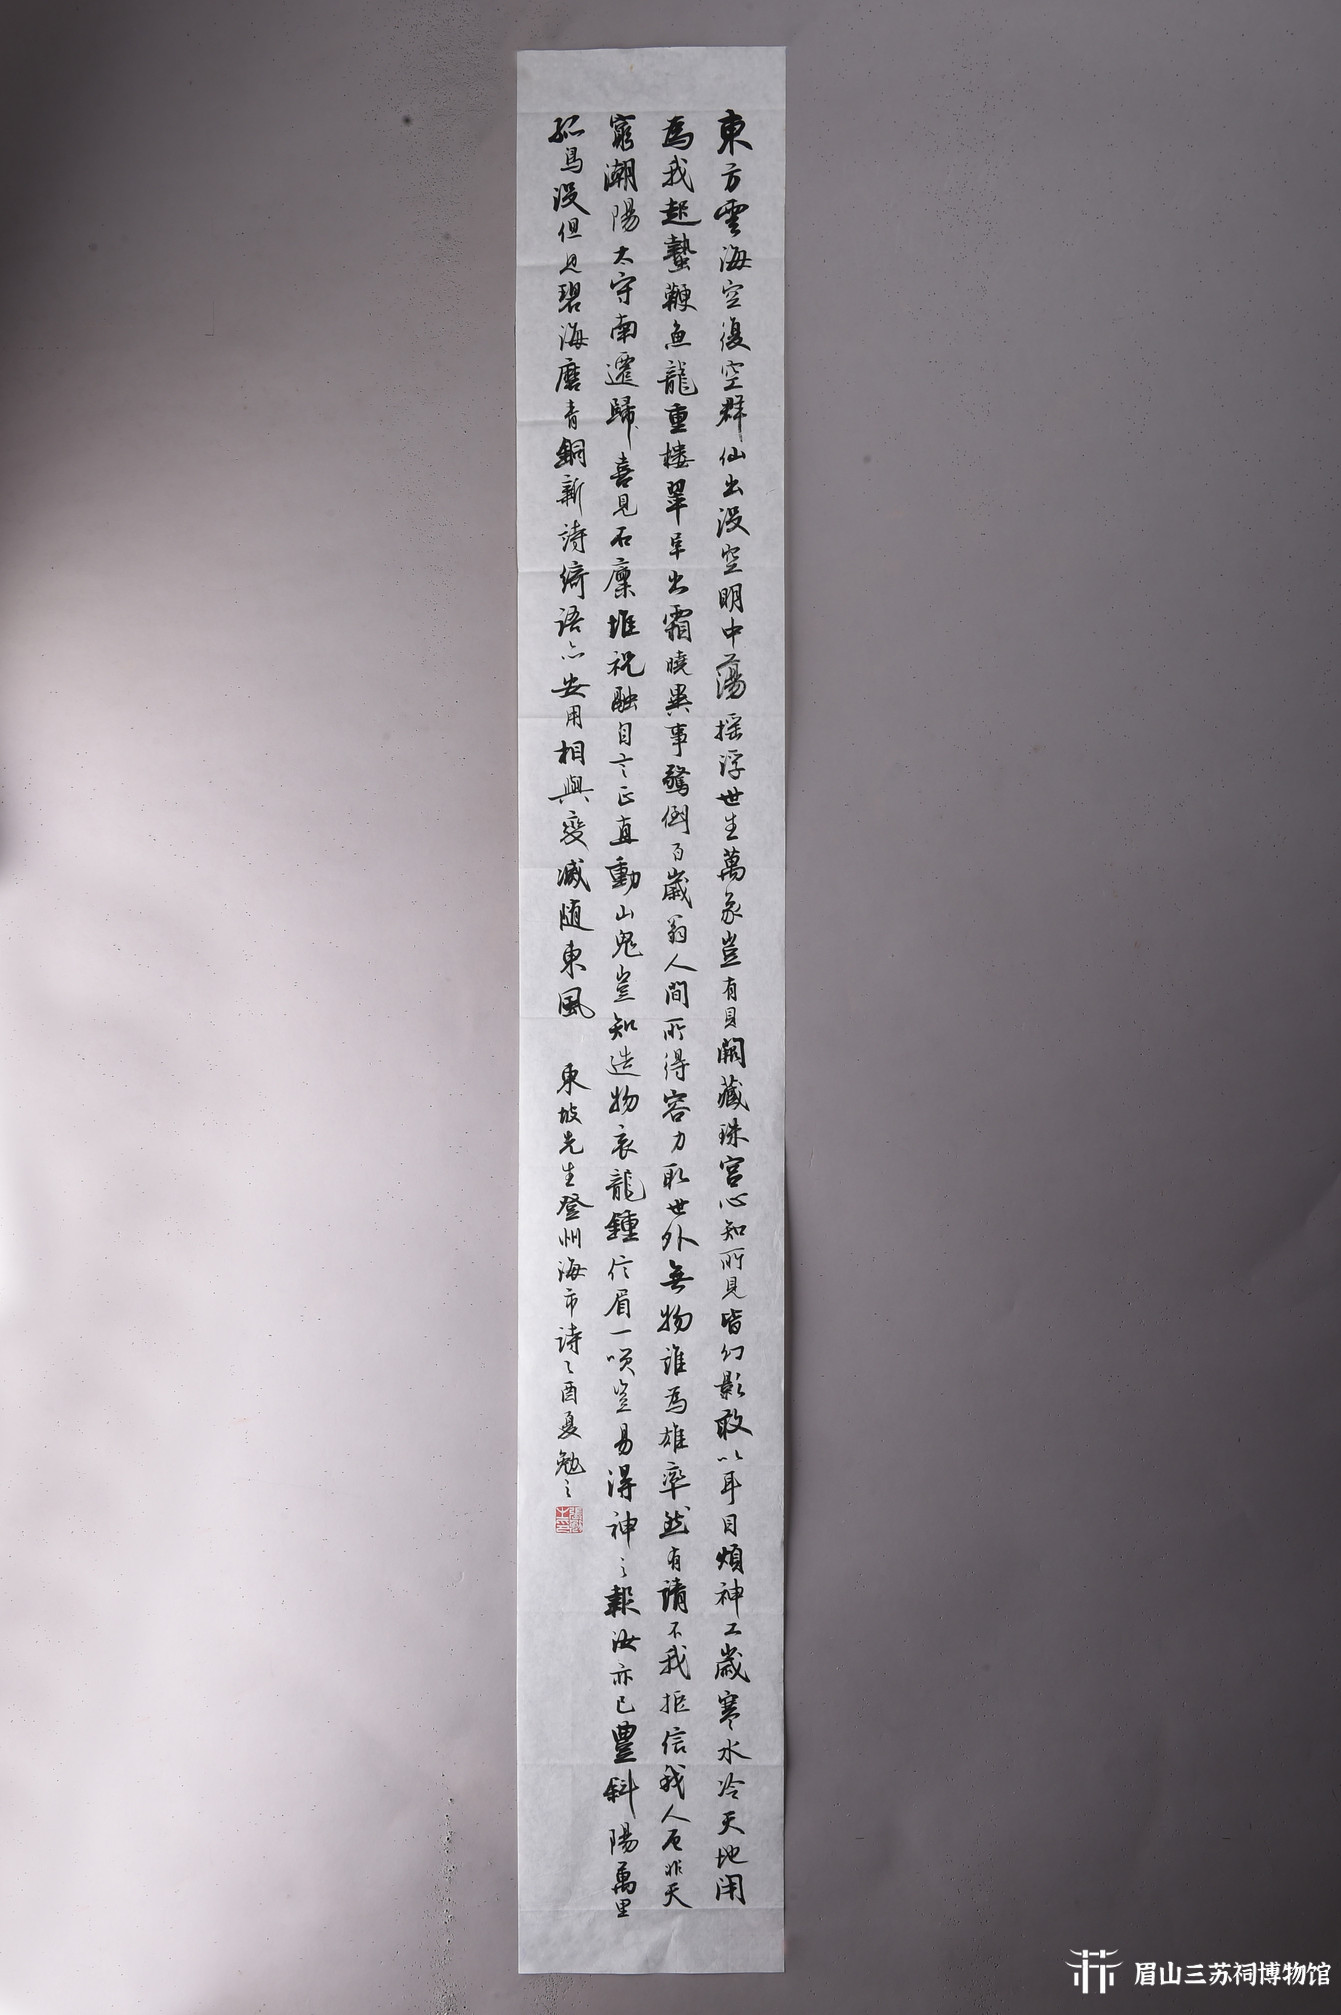 東方雲海空復空群仙出没空明中蕩摇浮世生萬象豈有貝闕藏珠宫心知所見皆幻影敢以耳目煩神工歲寒水冷天地閉
為我起蟄鞭魚龍重樓翠阜出霜曉異事驚倒百歲翁人間所得容力取世外無物誰為雄率然有請不我拒信我人厄非天
窮潮陽太守南遷歸喜見石廩堆祝融自言正直動山鬼豈知造物哀龍鍾信眉一笑豈易得神之報汝亦已豐斜陽萬里
孤鳥没但見碧海磨青銅新詩綺語亦安用相與變滅随東風 東坡先生登州海市詩乙酉夏勉之
眉山三苏祠博物馆